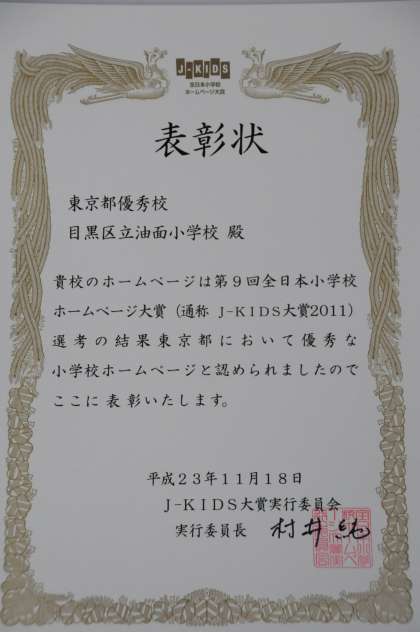 J-KIDS
全日本小学校
ホームページ大賞
表彰状
東京都優秀校
目黒区立油面小学校 殿
貴校のホームページは第９回全日本小学校
ホームページ大賞（通称 J-KIDS大賞2011）
選考の結果東京都において優秀な
小学校ホームページと認められましたので
ここに表彰いたします。
平成２３年１１月１８日
J-KIDS大賞実行委員会
実行委員長 村井 純